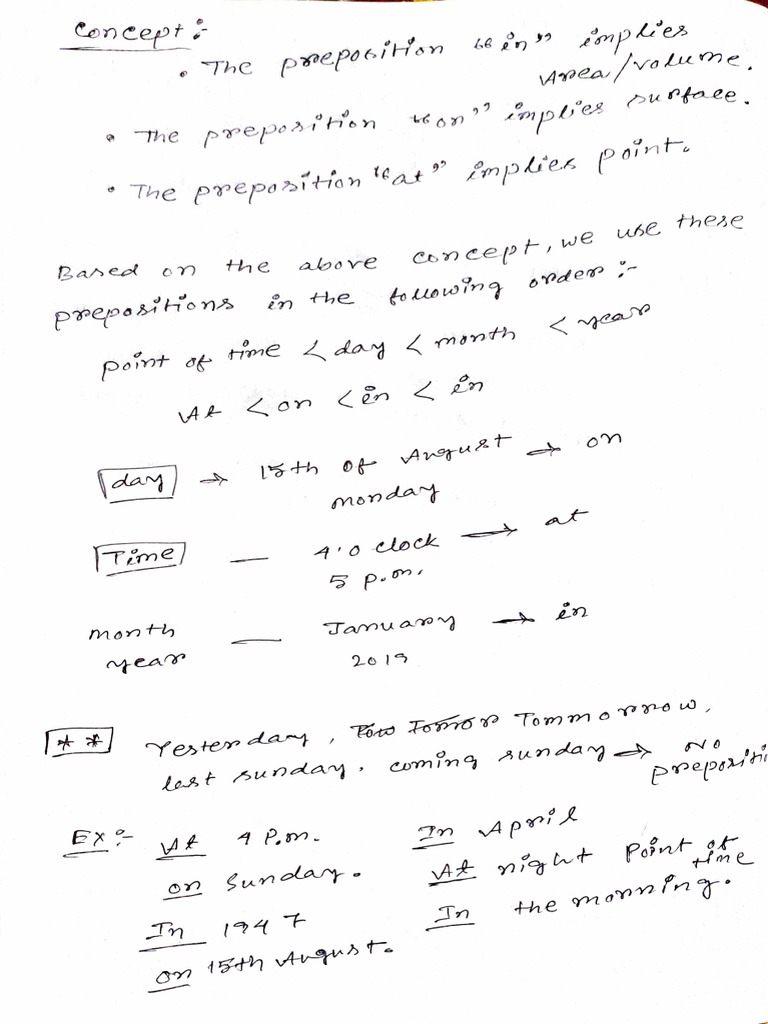 Concept :-
• The preposition "in" implies
Area/volume.
• The preposition "on" implies surface.
• The preposition "at" implies point.
Based on the above concept, we use these
prepositions in the following order :-
point of time < day < month < year
At < on < in < in
day → 15th of August → on
monday
Time — 4'o clock → at
5 p.m.
month — January → in
year 2019
** Yesterday, Tommorrow,
last sunday, coming sunday → No
prepositi
Ex :- At 4 P.m. In April
on Sunday. At night point of
time
In 1947 In the morning.
on 15th August.